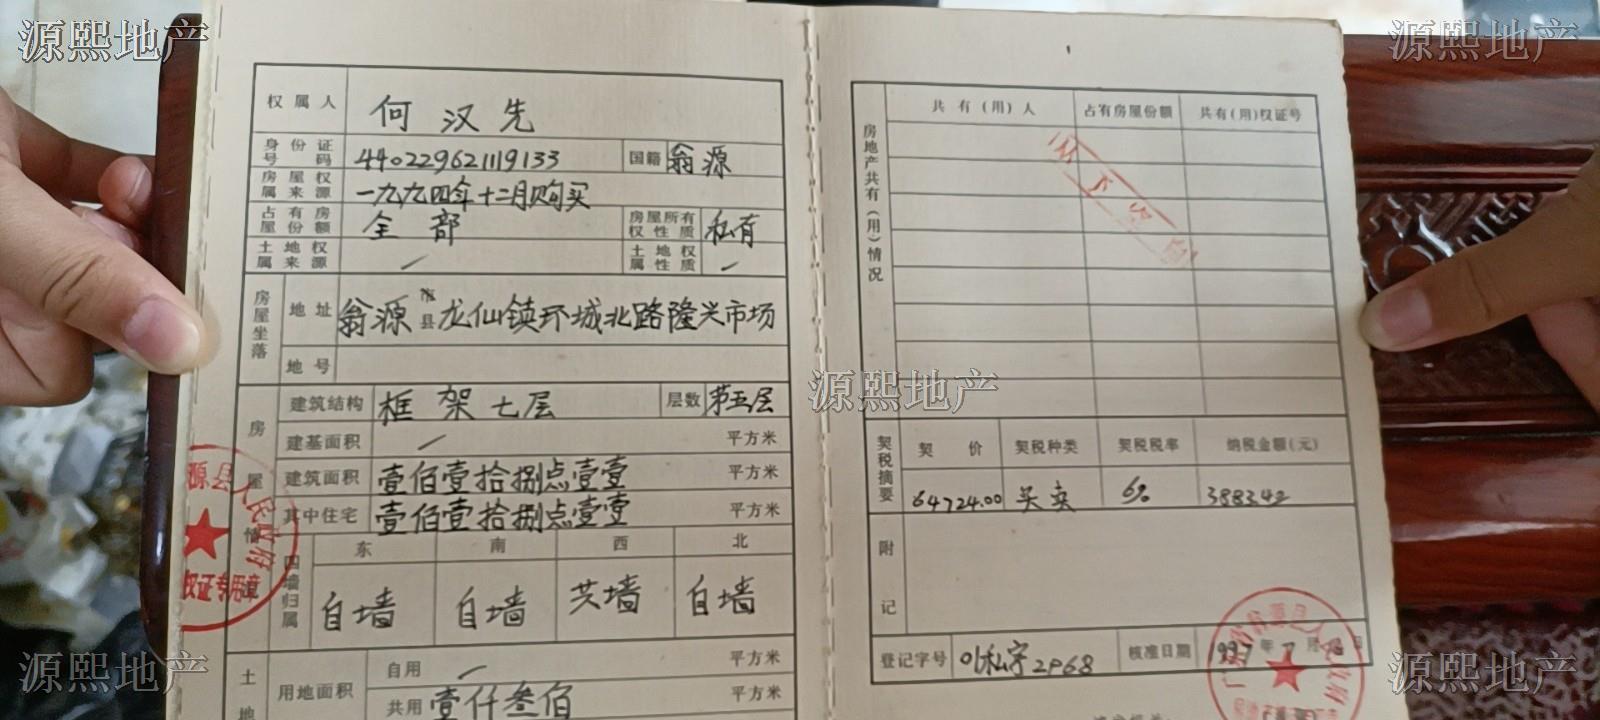 源熙地产
源熙地产
权属人 何汉先
身份证号码 440229621119133 国籍 翁源
房屋权属来源 一九九四年十二月购买
占有房屋份额 全部 房屋所有权性质 私有
土地权属来源 土地权属性质
房屋坐落 地址 翁源市县龙仙镇环城北路隆兴市场
地号
房屋情 建筑结构 框架七层 层数 第五层
建基面积 平方米
建筑面积 壹佰壹拾捌点壹壹 平方米
其中住宅 壹佰壹拾捌点壹壹 平方米
四墙归属 东 南 西 北
自墙 自墙 共墙 自墙
土地 用地面积 自用 平方米
共用 壹仟叁佰 平方米
源县人民政府
权证专用章
房地产共有(用)情况 共有(用)人 占有房屋份额 共有(用)权证号
以下空白
源熙地产
契税摘要 契价 契税种类 契税税率 纳税金额(元)
64724.00 买卖 6% 3883.42
附记
登记字号 01私字2968 核准日期 1997年7月 日
源县人民政府
源熙地产
源熙地产